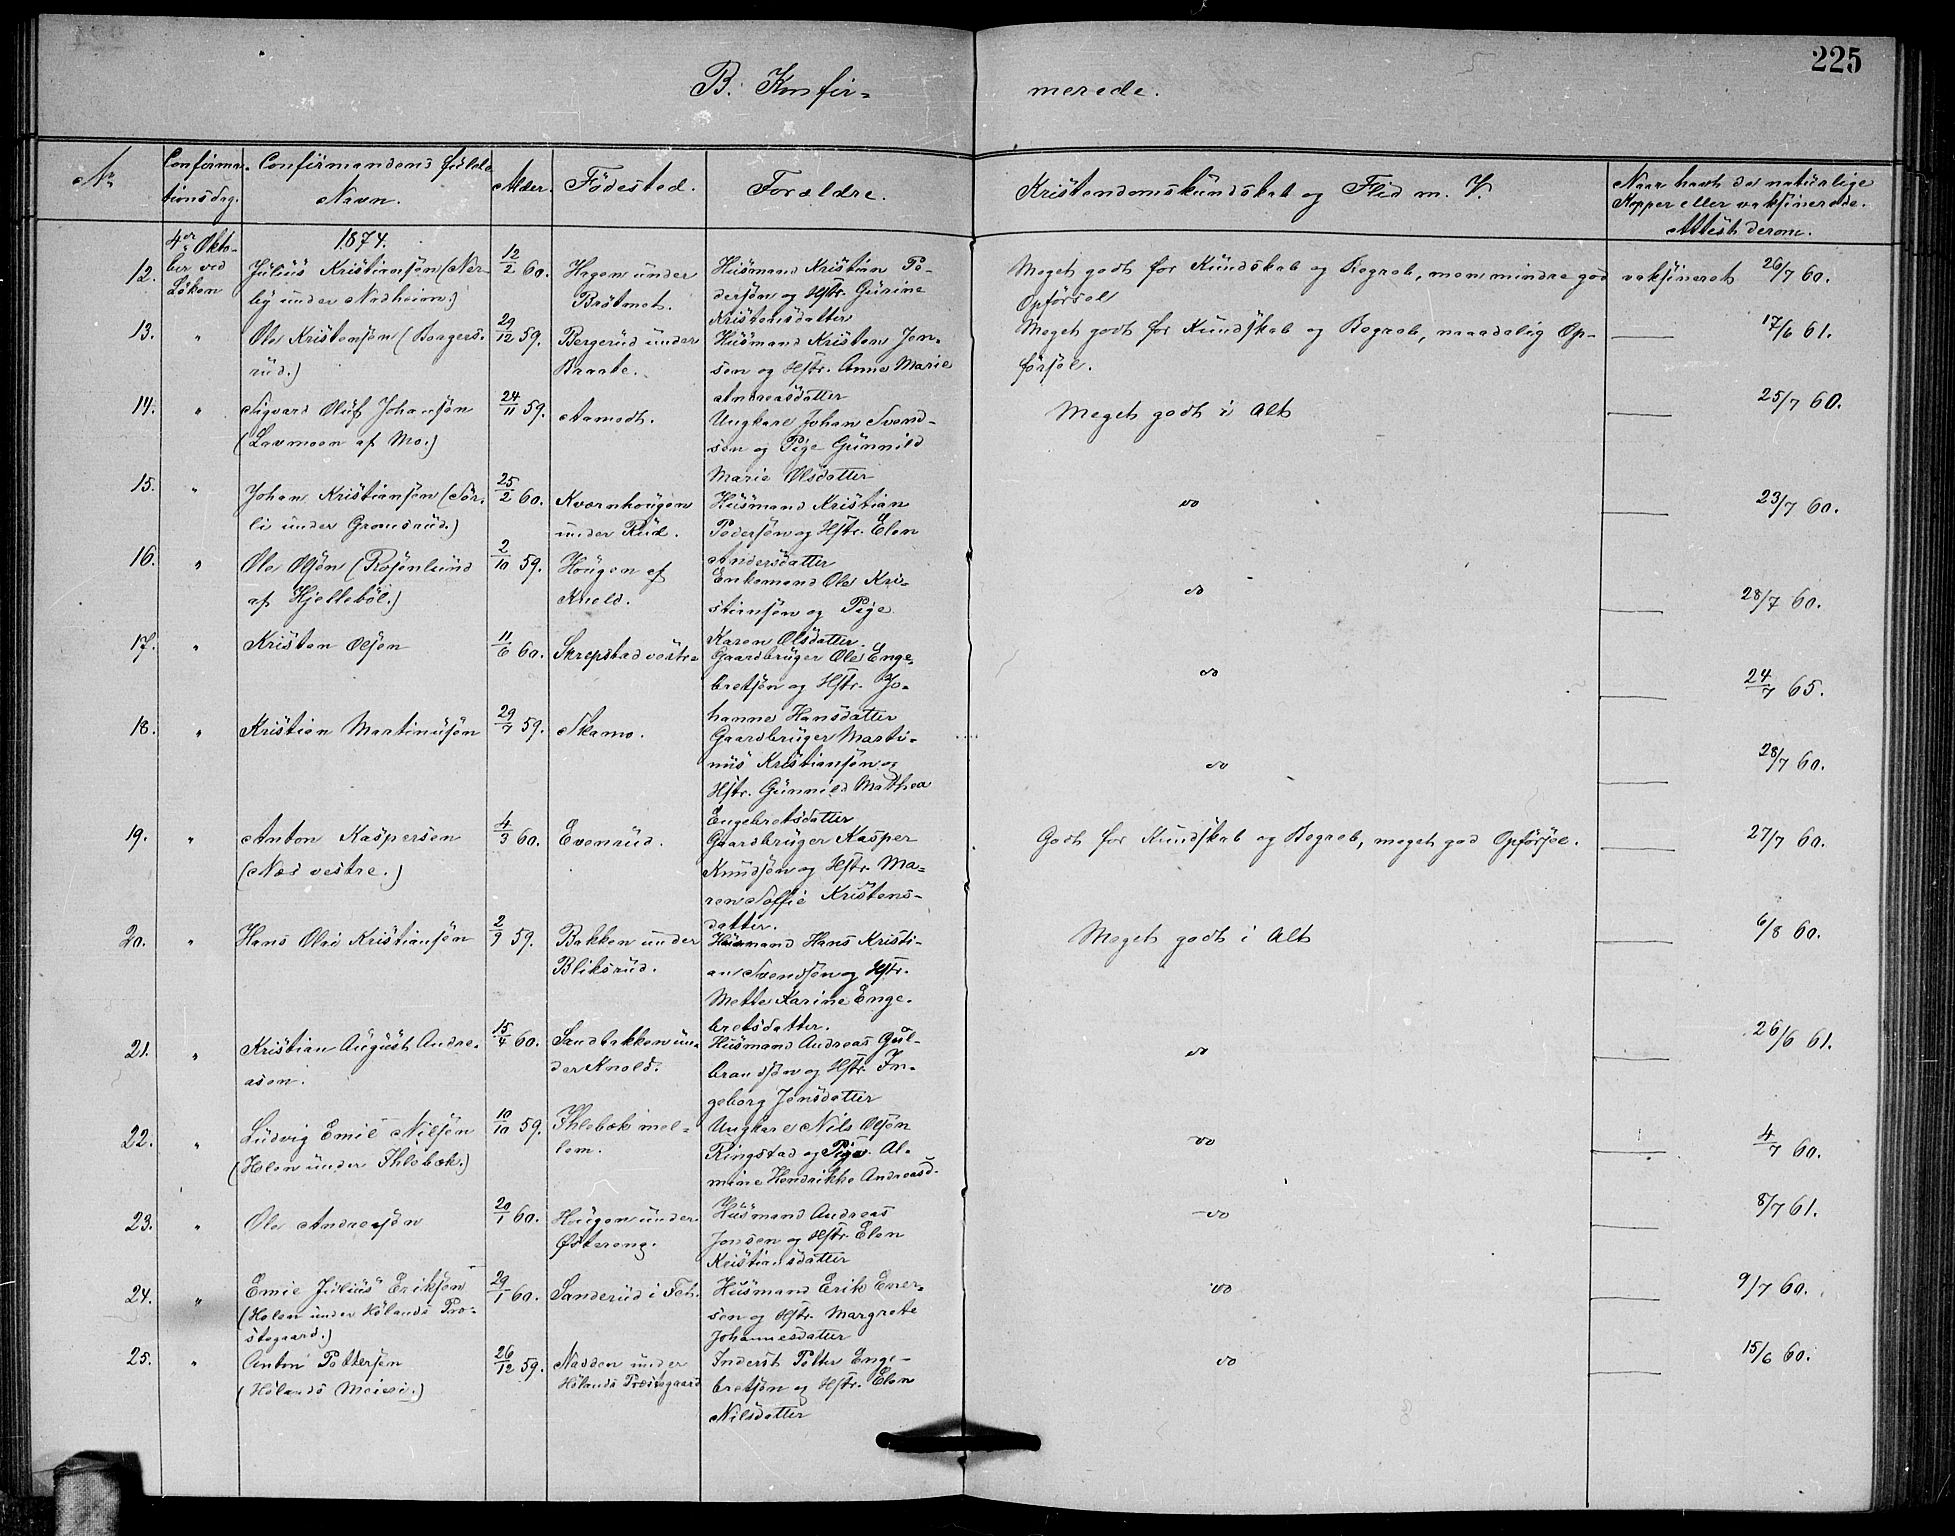 225
B. Konfir=
merede.
No
Confirma-
tionsdag.
Confirmandens fulde
Navn.
Alder.
Fødested.
Forældre.
Kristendomskundskab og Flid m. V.
Naar havt de naturlige
Kopper eller vaksinerede.
Attest derom.
1874.
12. 4de Okto-
ber ved
Løken
Julius Kristiansøn (Ner-
by under Nadheim.)
12/2 60.
Hagen under
Bråtnet.
Husmand Kristian Pe-
dersøn og Hstr. Gurine
Kristensdatter
Meget godt for Kundskab og Begreb, men mindre god
Opførsel
vaksineret 26/7 60.
13. "
Ole Kristensøn (Borgers-
rud.)
29/12 59.
Bergerud under
Braate.
Husmand Kristen Jen-
sen og Hstr. Anne Marie
Andreasdatter
Meget godt for Kundskab og Begreb, maadelig Op-
førsel.
— 17/6 61.
14. "
Sigvard Oluf Johansøn
(Lavmoen af Mo.)
24/11 59.
Aamodt.
Ungkarl Johan Svend-
sen og Pige Gunnild
Marie Olsdatter
Meget godt i Alt
— 25/7 60.
15. "
Johan Kristiansøn (Sør-
li under Gromsrud.)
25/2 60.
Kværnhougen
under Rud.
Husmand Kristian
Pedersøn og Hstr. Elen
Andersdatter
do
— 23/7 60.
16. "
Ole Olsøn (Rosenlund
af Hjellebøl.)
2/10 59.
Hougen af
Knold.
Enkemand Ole Kri-
stiansøn og Pige
Karen Olsdatter.
do
— 28/7 60.
17. "
Kristen Olsen
11/6 60.
Skrepstad vestre
Gaardbruger Ole Enge-
bretsøn og Hstr. Jo-
hanne Hansdatter
do
— 24/7 65.
18. "
Kristian Martinusøn
29/7 59.
Skamo.
Gaardbruger Marti-
nus Kristiansøn og
Hstr. Gunnild Mathea
Engebretsdatter
do
— 28/7 60.
19. "
Anton Kaspersen
(Næs vestre.)
4/3 60.
Evenrud.
Gaardbruger Kasper
Knudsøn og Hstr. Ma-
ren Soffie Kristens-
datter.
Godt for Kundskab og Begreb, meget god Opførsel.
— 27/7 60.
20. "
Hans Olai Kristiansøn
2/9 59.
Bakken under
Bliksrud.
Husmand Hans Kristi-
an Svendsøn og Hstr.
Mette Karine Enge-
bretsdatter.
Meget godt i Alt
— 6/8 60.
21. "
Kristian August Andre-
asen.
15/4 60.
Sandbakken un-
der Knold.
Husmand Andreas Gul-
brandsøn og Hstr. In-
geborg Jensdatter
do
— 26/6 61.
22. "
Ludvig Emil Nilsøn
(Holen under Ihlebæk.)
10/10 59.
Ihlebæk mel-
lem.
Ungkarl Nils Olsøn
Ringstad og Pige Al-
mine Hendrikke Andreasd.
do
— 4/7 60.
23. "
Ole Andreasøn
20/1 60.
Hougen under
Østereng.
Husmand Andreas
Jonsen og Hstr. Elen
Kristiansdatter
do
— 8/7 61.
24. "
Emil Julius Eriksøn
(Holen under Hølands Præ-
stegaard.)
29/1 60.
Sanderud i Fet.
Husmand Erik Ener-
sen og Hstr. Margrete
Johannesdatter
do
— 9/7 60.
25. "
Anton Pettersøn
(Hølands Meieri.)
26/12 59.
Nadden under
Hølands Præstegaard
Inderst Petter Enge-
bretsøn og Hstr. Elen
Nilsdatter
do
— 15/6 60.